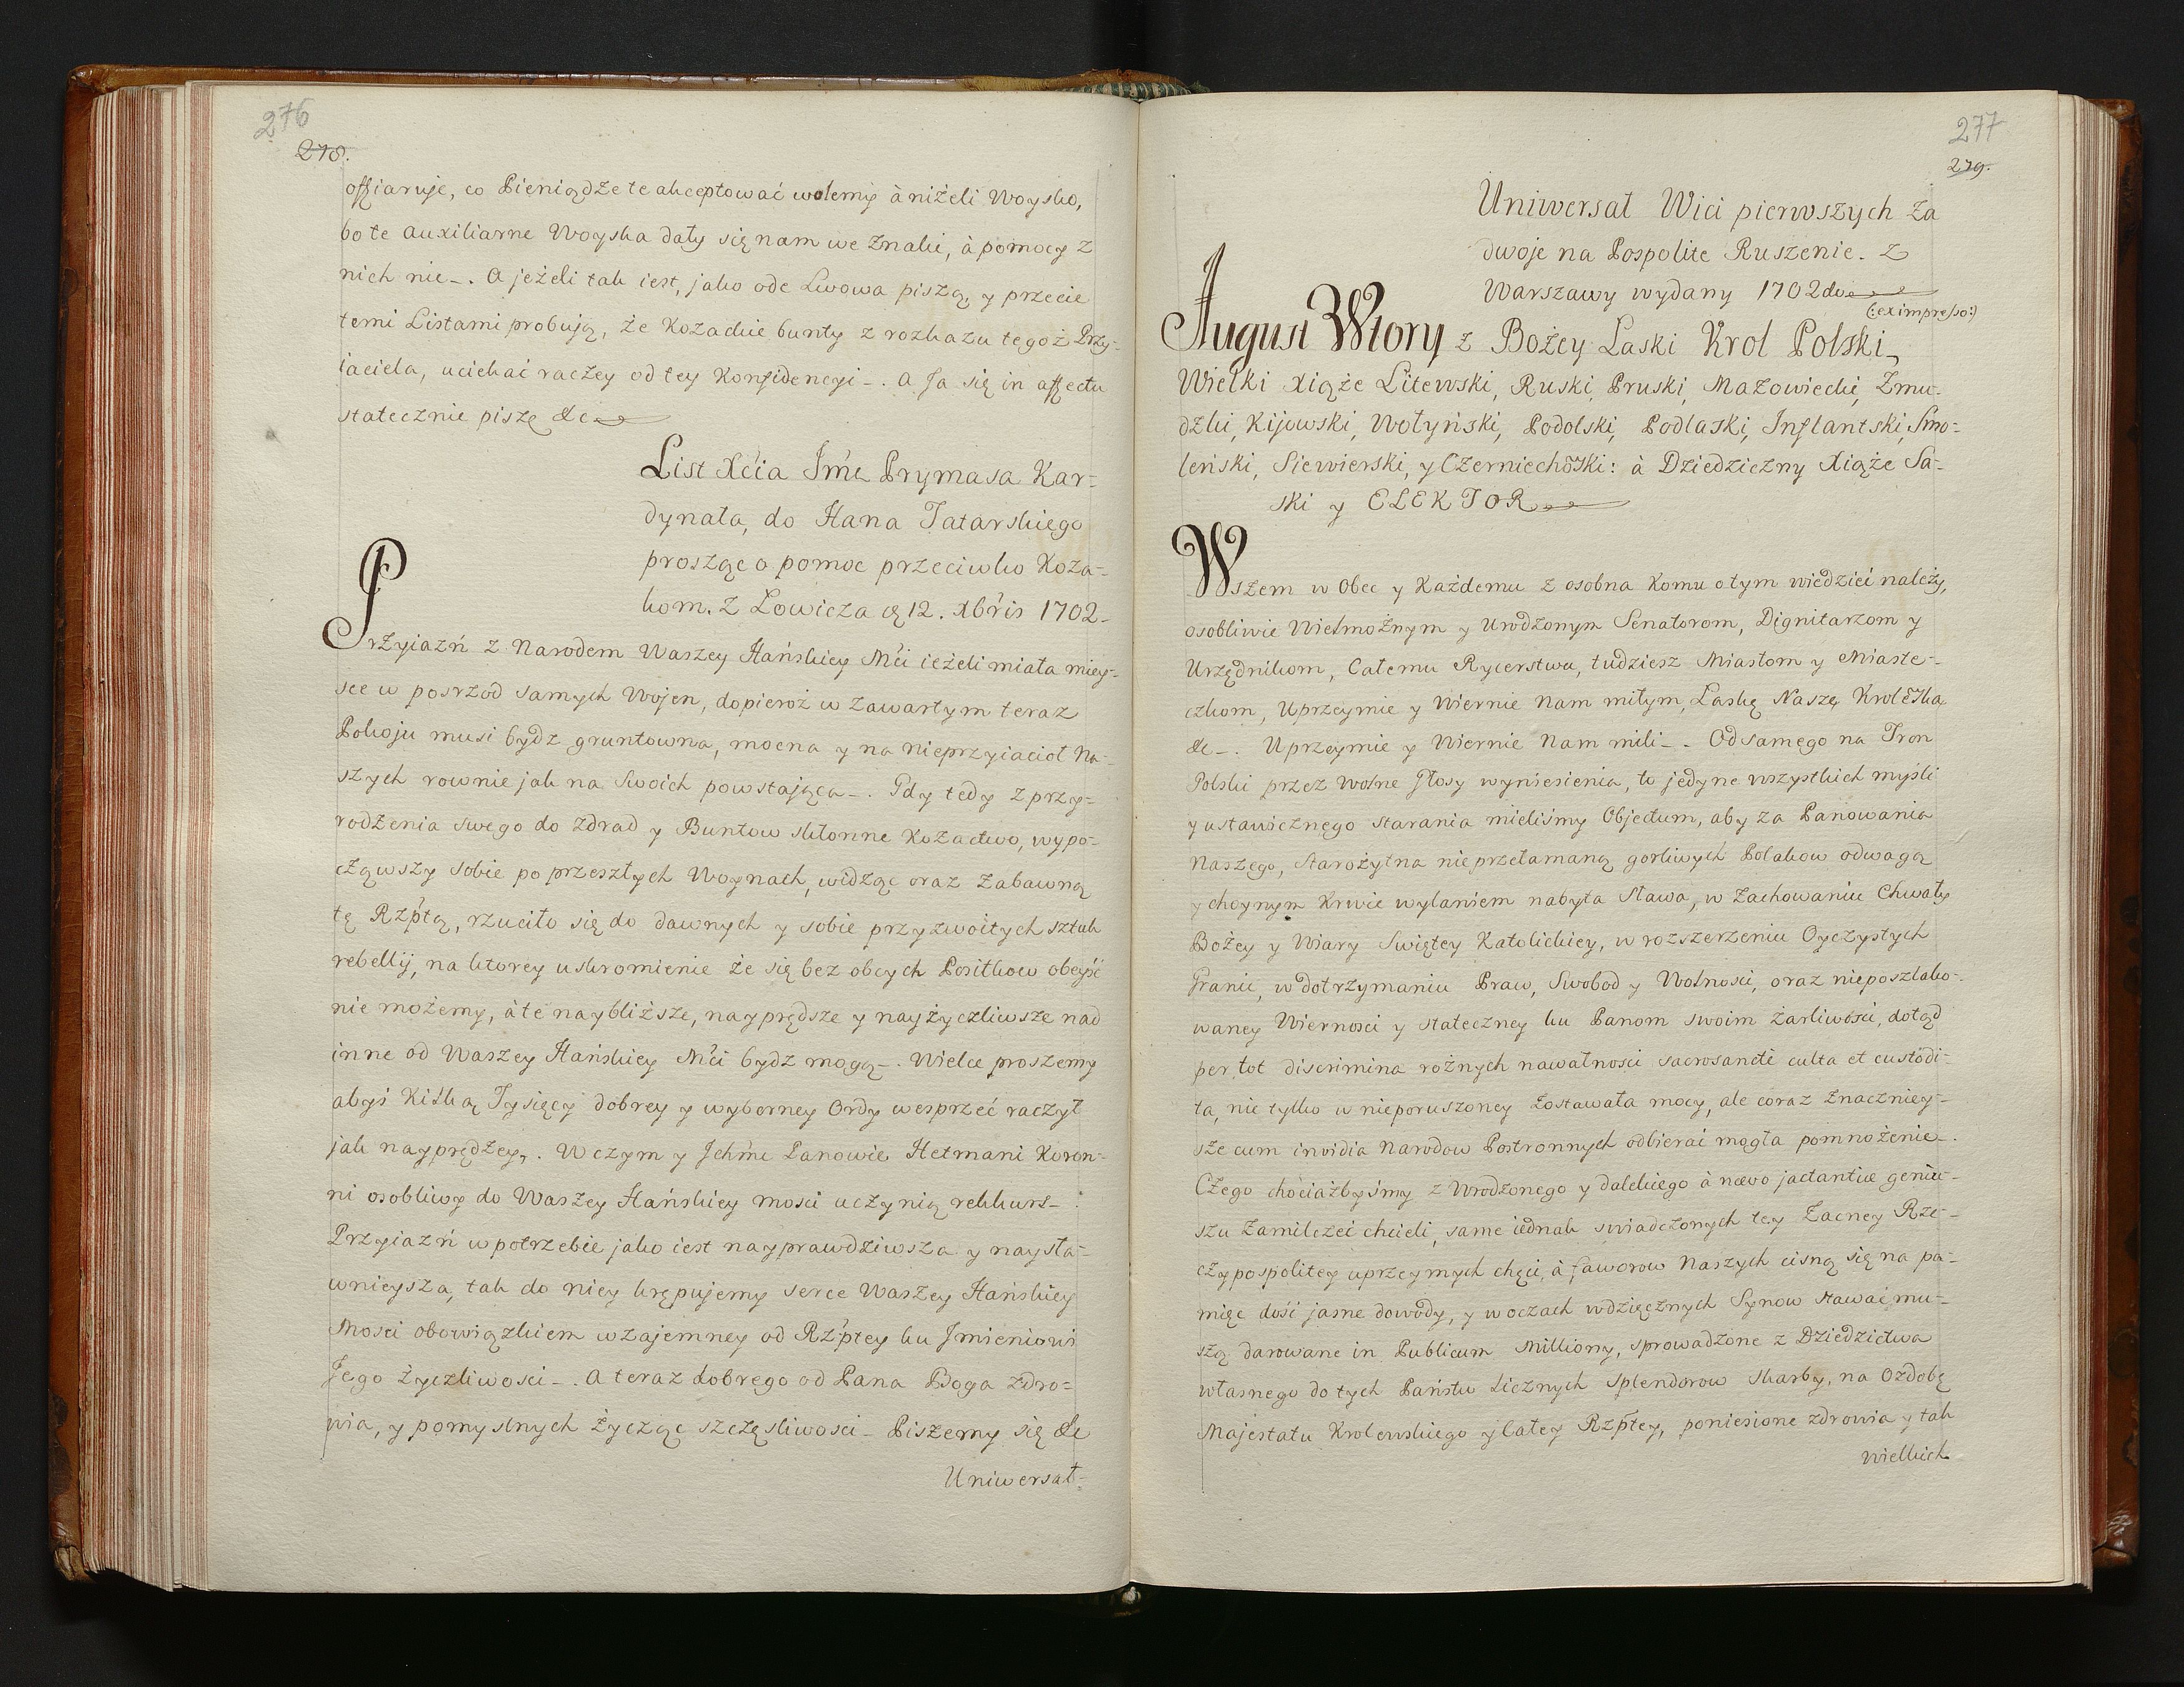 276
278.
offiaruje, co Pieniądze te akceptować wolemy à niżeli Woysko,
bo te auxiliarne Woyska dały się nam we Znaki, à pomocy z
nich nie_. A jeżeli tak iest, jako ode Lwowa piszą, y przecie
temi Listami probują, że Kozackie bunty z rozkazu tegoż Przy-
iaciela, uciekać raczey od tey Konfidencyi_. A Ja się in affectu
statecznie piszę &c
List Xcia Jmc Prymasa Kar=
dynała, do Hana Tatarskiego
prosząc o pomoc przeciwko Koza-
kom. Z Lowicza 12. Xbris 1702_
Przyiazń z Narodem Waszey Hańskiey Mci ieżeli miała miey-
sce w posrzod samych Wojen, dopieroż w Zawartym teraz
Pokoju musi bydz gruntowna, mocna y na nieprzyiacioł Na-
szych rownie jak na Swoich powstająca_. Gdy tedy z przy-
rodzenia swego do zdrad y Buntow skłonne Kozactwo, wypo-
cząwszy sobie po przeszłych Woynach, widząc oraz Zabawną
tę Rzptą, rzuciło się do dawnych y sobie przyzwoitych sztuk
rebellij, na ktorey uskromienie że się bez obcych Posiłkow obeyść
nie możemy, à te naybliższe, nayprędsze y nayżyczliwsze nad
inne od Waszey Hańskiey Mci bydz mogą_. Wielce prosemy
abyś Kilką Tysięcy dobrey y wyborney Ordy wesprzeć raczył
jak nayprędzey. W czym y Jchmc Panowie Hetmani Koron-
ni osobliwy do Waszey Hańskiey mosci uczynią rekkurs_
Przyiazń w potrzebie jako iest nayprawdziwsza y naysła-
wnieysza, tak do niey krępujemy serce Waszey Hańskiey
Mosci obowiązkiem wzajemney od Rzptey ku Jmieniowi
Jego życzliwosci_. A teraz dobrego od Pana Boga zdro-
wia, y pomyslnych życząc szczęsliwosci_ Piszemy się &c
Uniwersał-
277
279.
Uniwersał Wici pierwszych za
dwoje na Pospolite Ruszenie. z
Warszawy wydany 1702do
(:ex impresso:)
August Wtory z Bożey Laski Krol Polski,
Wielki Xiąże Litewski, Ruski, Pruski, Mazowiecki, Zmu-
dzki, Kijowski, Wołyński, Podolski, Podlaski, Inflantski, Smo-
leński, Siewierski, y Czerniechōski: à Dziedziczny Xiąże Sa-
ski y ELEKTOR
Wszem w Obec y Każdemu z osobna Komu o tym wiedzieć należy,
osobliwie Wielmożnym y Urodzonym Senatorom, Dignitarzom y
Urzędnikom, Całemu Rycerstwu, tudziesz Miastom y Miaste-
czkom, Uprzeymie y Wiernie Nam miłym, Laskę Naszą Krolēską
&c_. Uprzeymie y Wiernie Nam mili_. Od samego na Tron
Polski przez wolne Głosy wyniesienia, to jedyne wszystkich myśli
y ustawicznego starania mieliśmy Objectum, aby za Panowania
Naszego, Starożytna nieprzełamaną gorliwych Polakow odwagą
y choynym Krwie wylaniem nabyta Sława, w Zachowaniu Chwały
Bożey y Wiary Swiętey Katolickiey, w rozszerzeniu Oyczystych
Granic, w dotrzymaniu Praw, Swobod y Wolnosci, oraz nieposzlako-
waney Wiernosci y stateczney ku Panom swoim żarliwości, dotąd
per tot discrimina rożnych nawałnosci sacrosanctè culta et custodi-
ta, nie tylko w nieporuszoney Zostawała mocy, ale coraz Znaczniey-
sze cum invidia Narodow Postronnych odbierać mogła pomnożenie_.
Czego chociażbyśmy z Wrodzonego y dalekiego à nævo jactantiæ geniu-
szu Zamilczeć chcieli, same iednak swiadczonych tey Zacney Rze-
czypospolitey uprzeymych chęci, à faworow Naszych cisną się na pa-
mięc dość jasne dowody, y w oczach wdzięcznych Synow stawać mu-
szą darowane in Publicum Milliony, sprowadzone z Dziedzictwa
własnego do tych Państw licznych splendorow skarby, na Ozdobę
Majestatu Krolewskiego y Całey Rzptey, poniesione zdrowia y tak
wielkich